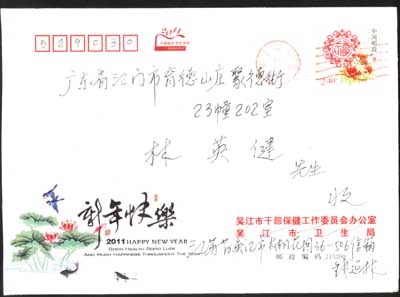 529030
中国邮政
2.40
广东省江门市育德山庄聚德街
23幢202室
林英健
先生
收
新年快樂
2011 HAPPY NEW YEAR
GOOD HEALTH GOOD LUCK
AND MUCH HAPPINESS THROUGHOUT THE NEW
吴江市干部保健工作委员会办公室
吴江市卫生局
江苏省吴江市梅石花园36-506信箱
邮政编码 215200
钱延林